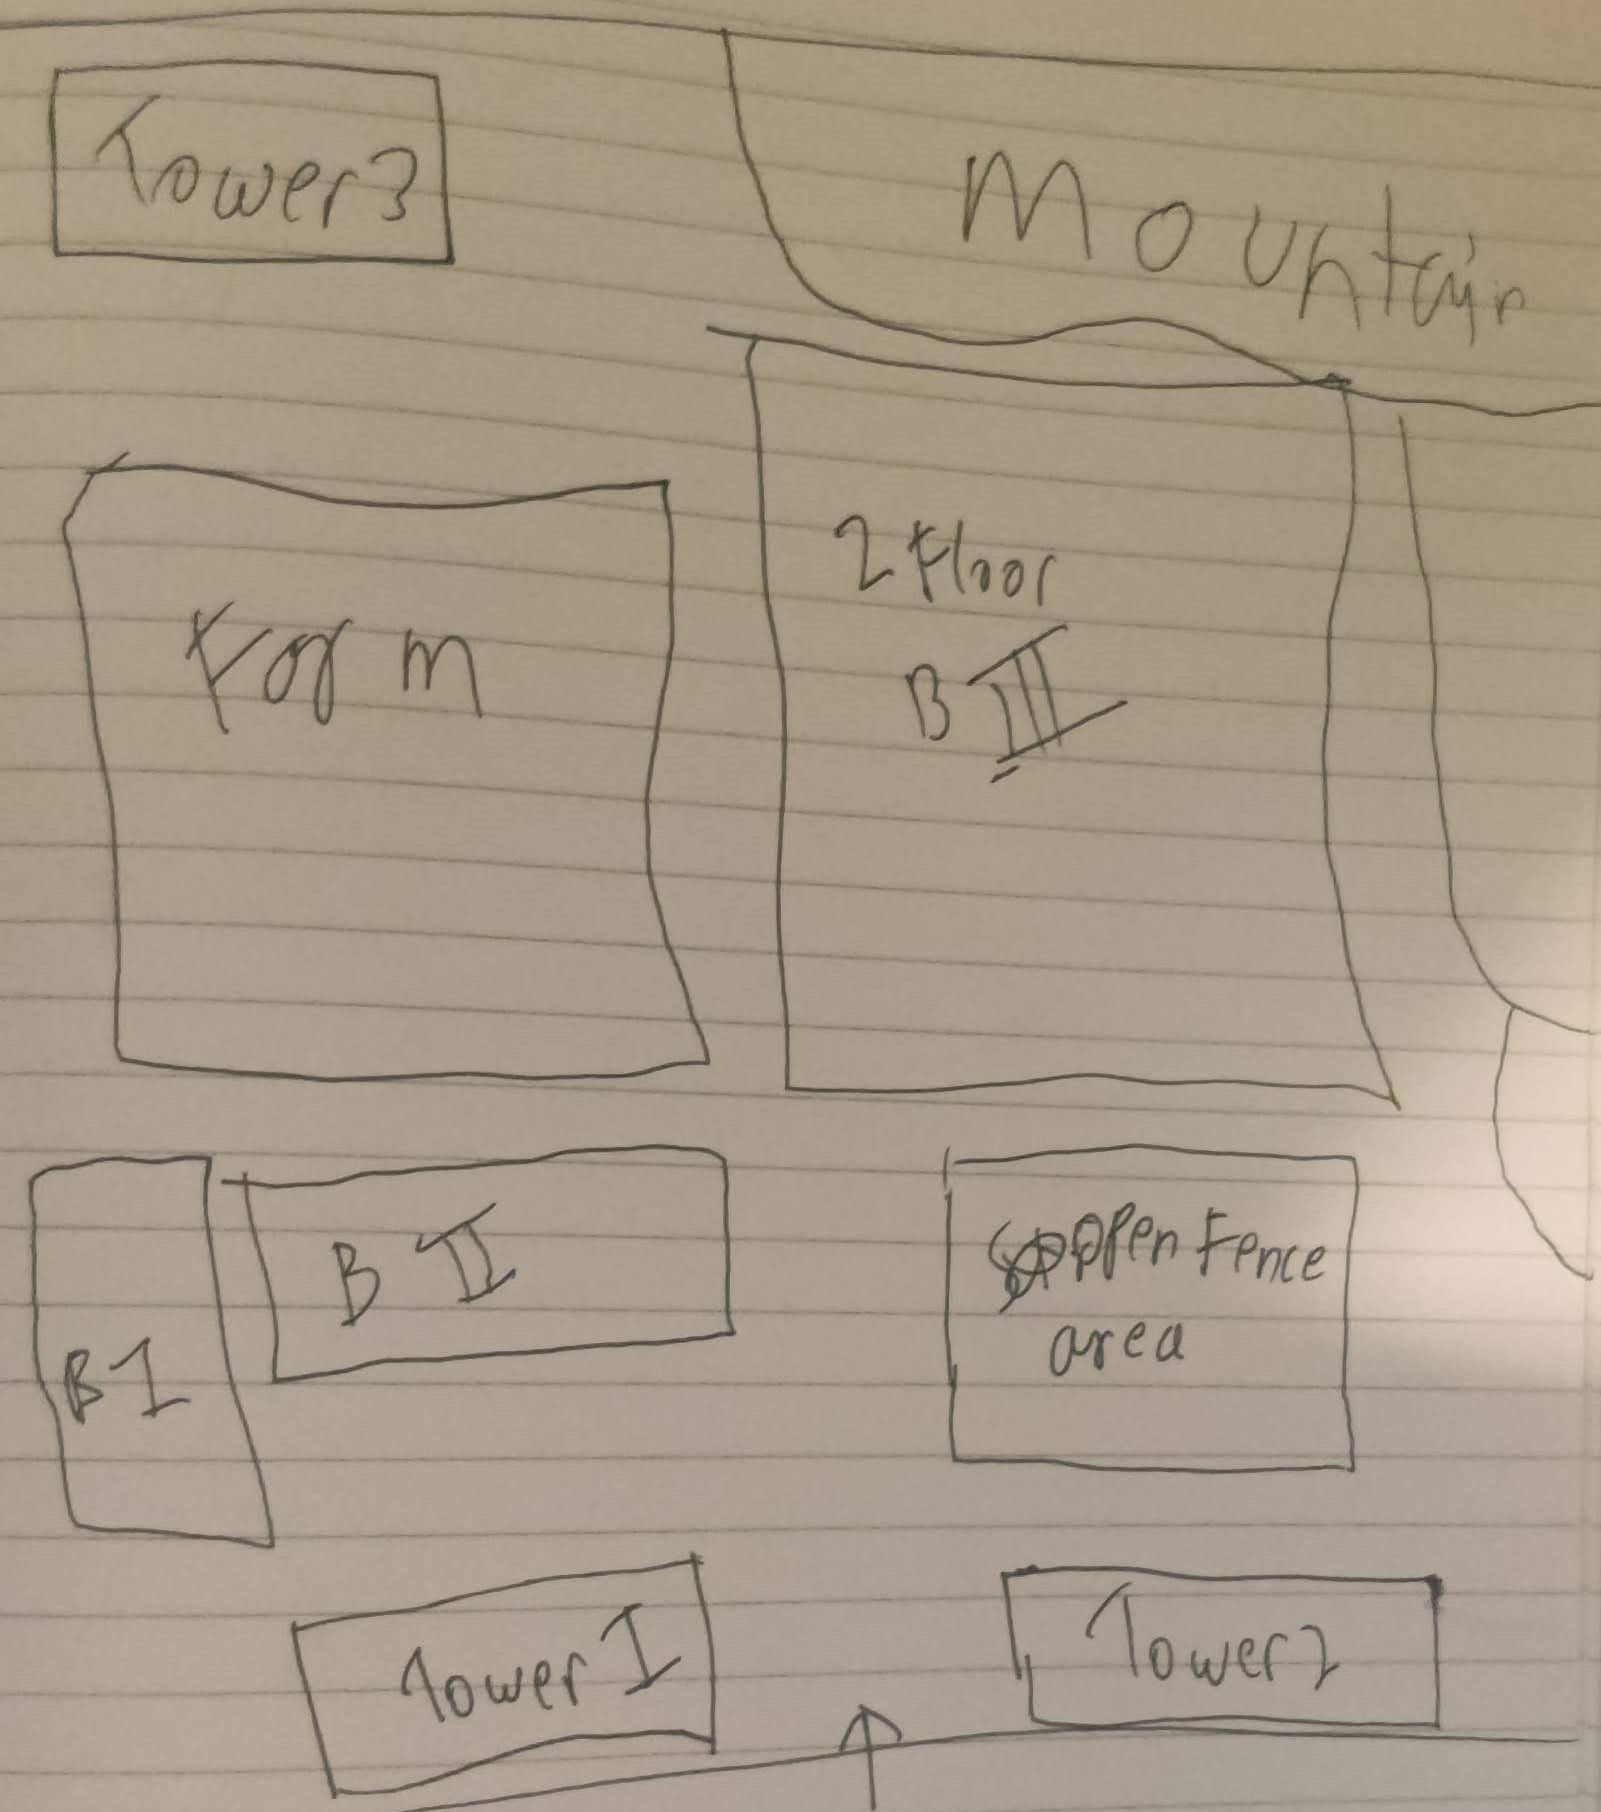 Tower 3
Mountain
2 Floor
B III
Form
B II
B I
Open Fence
area
Tower I
Tower 2